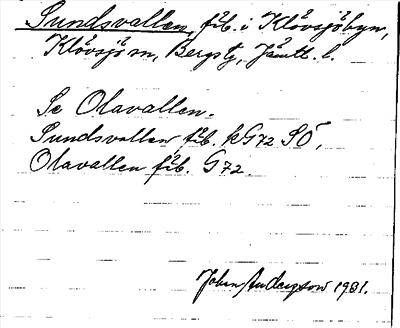 Sundsvallen, fäb. i Klövsjöbyn,
Klövsjö sn, Bergs tg, Jämtl. l.
Se Olavallen.
Sundsvallen fäb. kG72 SÖ,
Olavallen fäb. G72.
John Anderzson 1931.